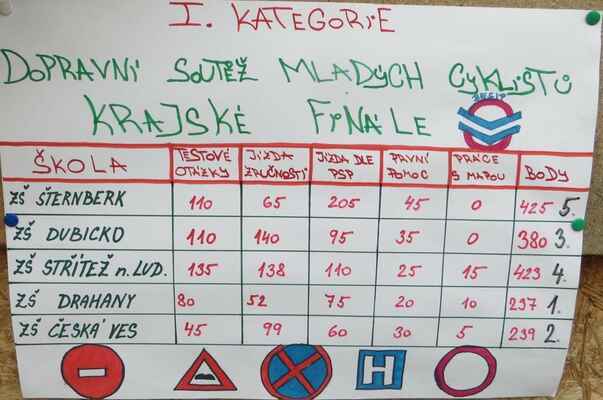 I. KATEGORIE
DOPRAVNÍ SOUTĚŽ MLADÝCH CYKLISTŮ
KRAJSKÉ FINÁLE
BESIP
ŠKOLA TESTOVÉ OTÁZKY JÍZDA ZRUČNOSTI JÍZDA DLE PSP PRVNÍ POMOC PRÁCE S MAPOU BODY
ZŠ ŠTERNBERK 110 65 205 45 0 425 5.
ZŠ DUBICKO 110 140 95 35 0 380 3.
ZŠ STŘÍTEŽ n. LUD. 135 138 110 25 15 423 4.
ZŠ DRAHANY 80 52 75 20 10 237 1.
ZŠ ČESKÁ VES 45 99 60 30 5 239 2.
H